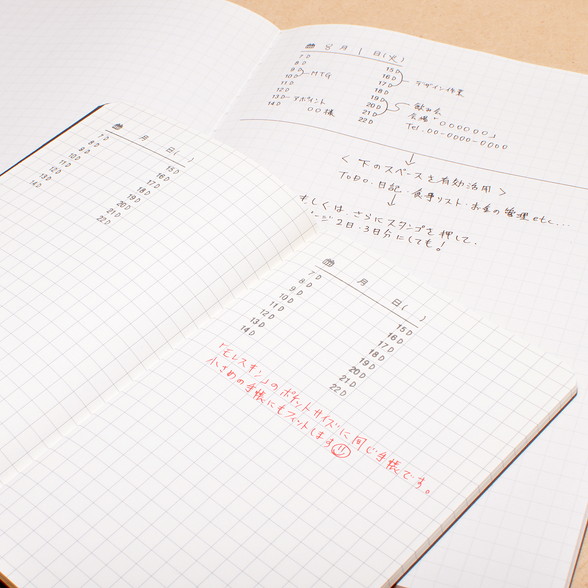 8 月 1 日(火)
7D
8D
9D
10D MTG
11D
12D
13D アポイント
14D ○○様
15D
16D デザイン作業
17D
18D
19D
20D 飲み会
21D 会場「○○○○○○」
22D Tel.00-0000-0000
<下のスペースを有効活用>
ToDo.日記.食事リスト.お金の管理etc...
もしくは、さらにスタンプを押して、
ページ2日・3日分にしても!
月 日( )
7D
8D
9D
10D
11D
12D
13D
14D
15D
16D
17D
18D
19D
20D
21D
22D
月 日( )
7D
8D
9D
10D
11D
12D
13D
14D
15D
16D
17D
18D
19D
20D
21D
22D
「モレスキン」のポケットサイズに同じ手帳です。
小さめの手帳にもフィットします